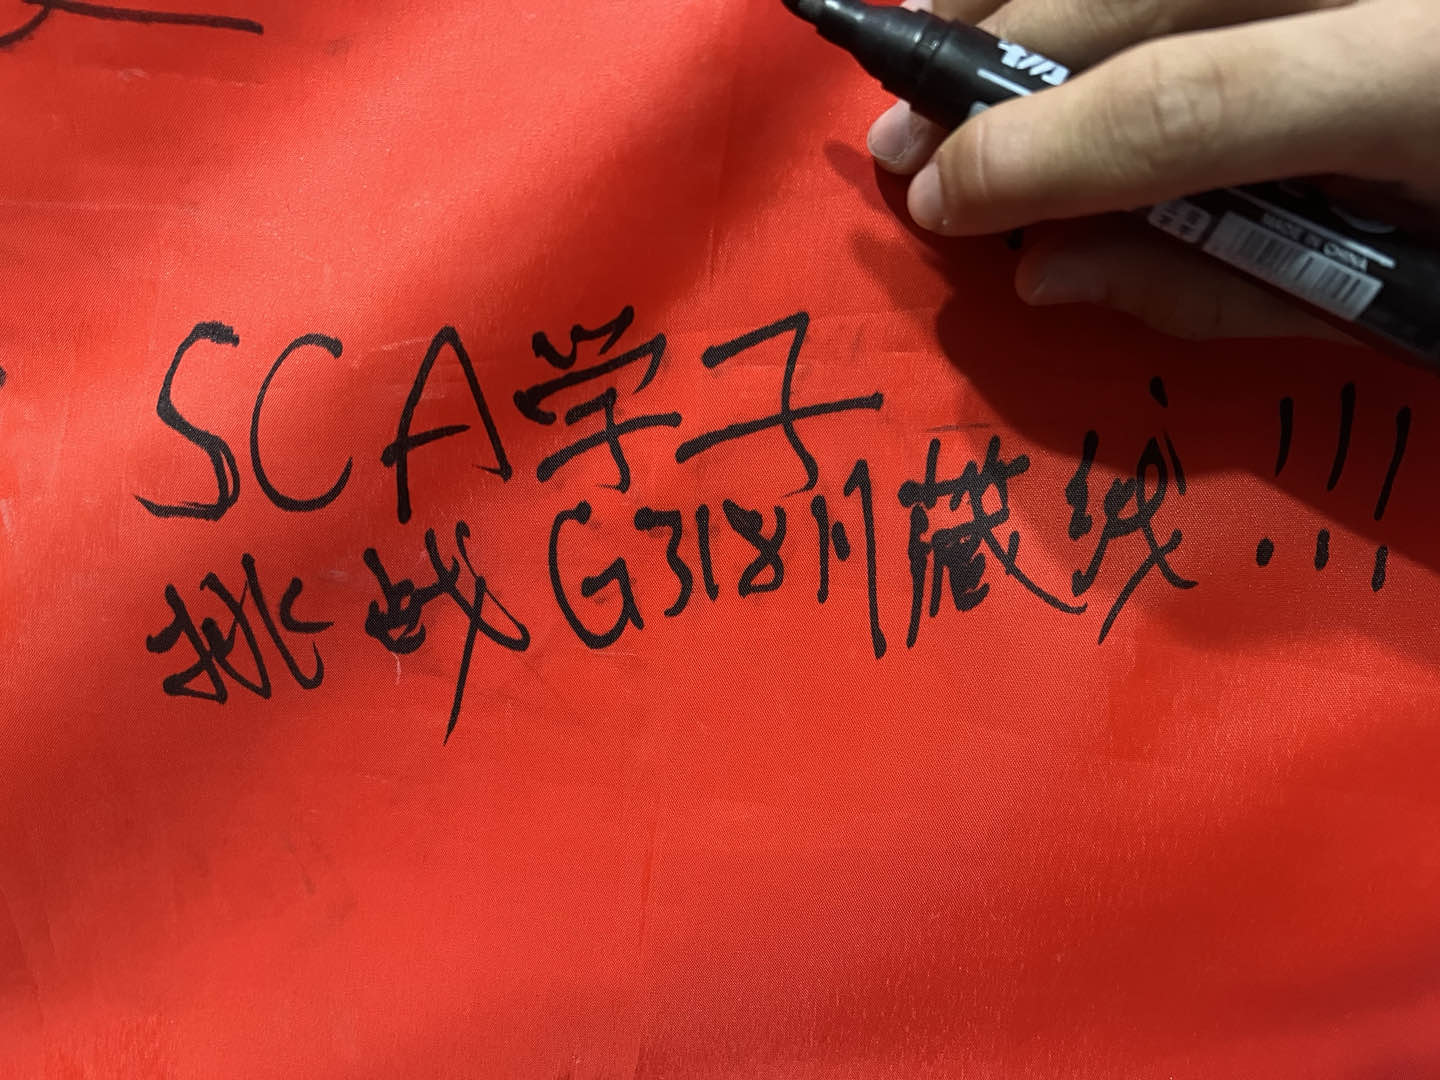 SCA学子
挑战G318川藏线!!!
MADE IN CHINA